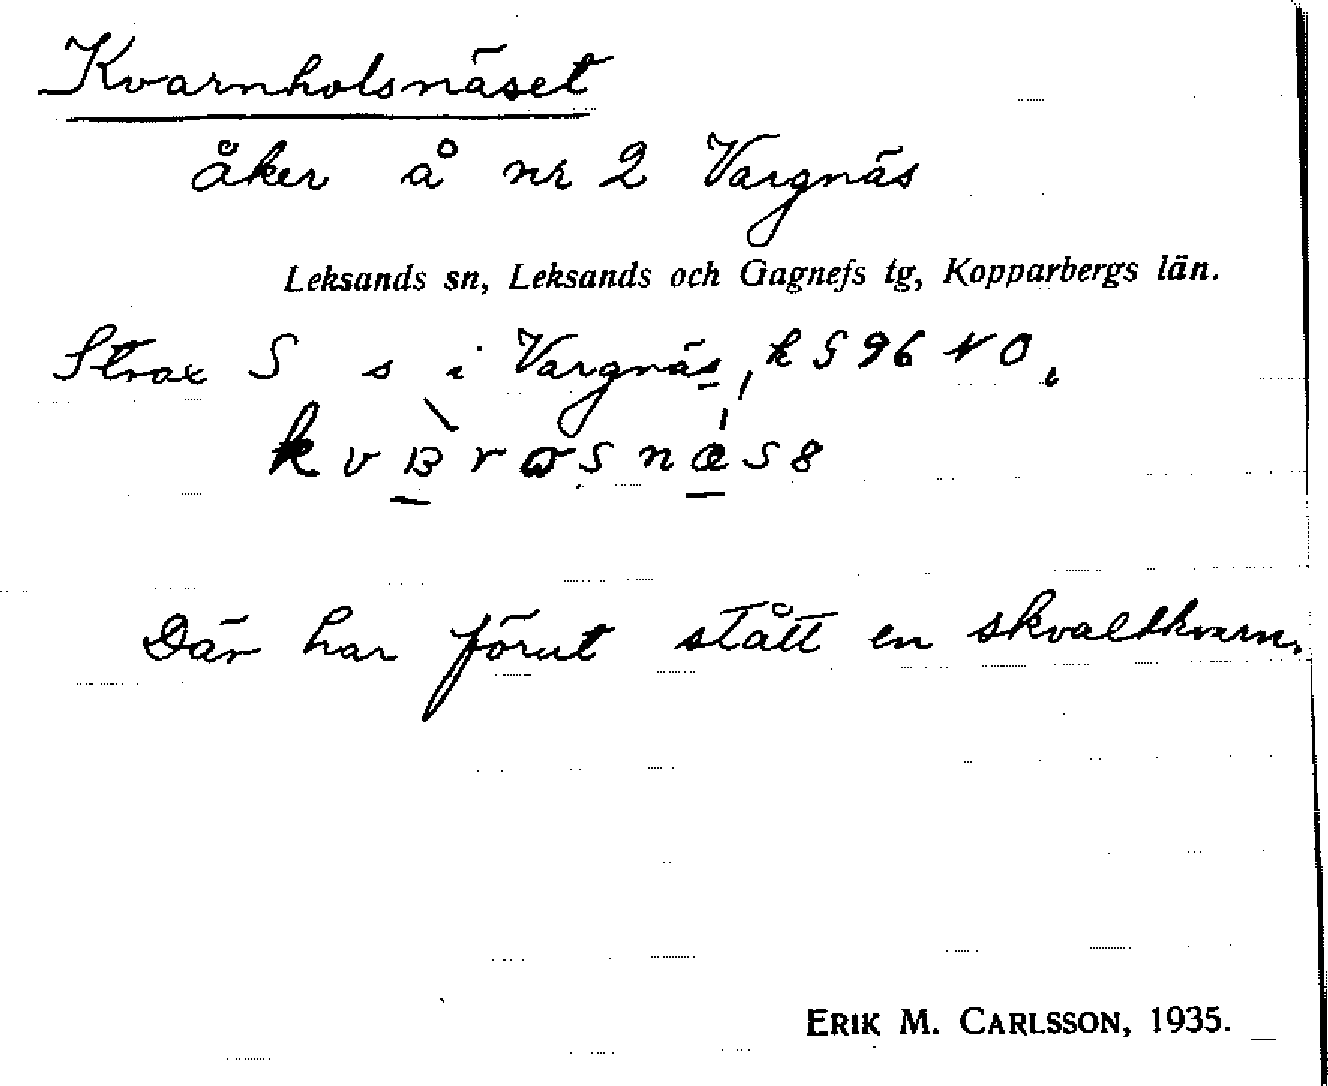 Kvarnholsnäset
åker å nr 2 Vargnäs
Leksands sn, Leksands och Gagnefs tg, Kopparbergs län.
Strax S s i Vargnäs, k 596 NO.
Där har förut stått en skvaltkvarn.
ERIK M. CARLSSON, 1935.